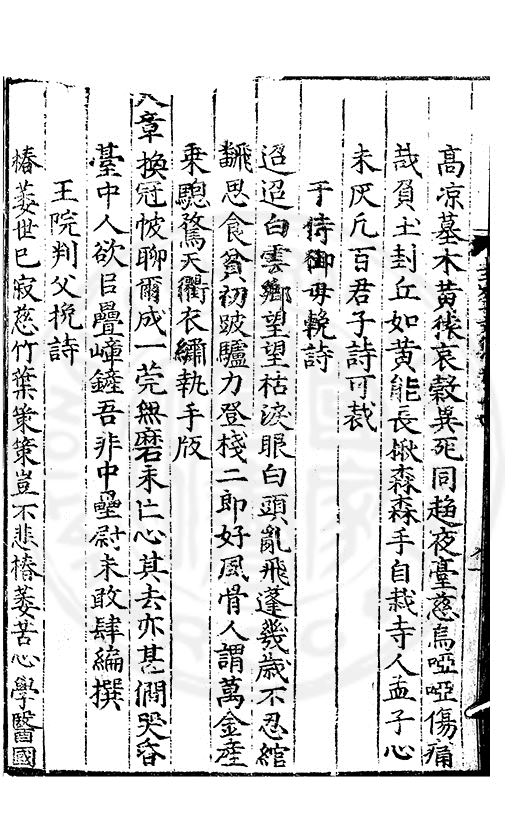 高凉墓木黃猨哀穀異死同趋夜臺慈烏啞啞傷痛
哉負土封丘如黃能長楸森森手自栽寺人孟子心
未厌凡百君子詩可裁
于侍御母輓詩
迢迢白雲鄉望望枯淚眼白頭亂飛蓬幾歲不忍綰
飜思食貧初跛驢力登棧二郎好風骨人謂萬金產
乘驄騖天衢衣繡執手版
章換冠帔聊爾成一莞無磨未亡心其去亦甚僩哭昏
臺中人欲曰疊嶂鏟吾非中壘尉未敢肆編撰
王院判父挽詩
椿萎世已寂慈竹葉策策豈不悲椿萎苦心學醫國